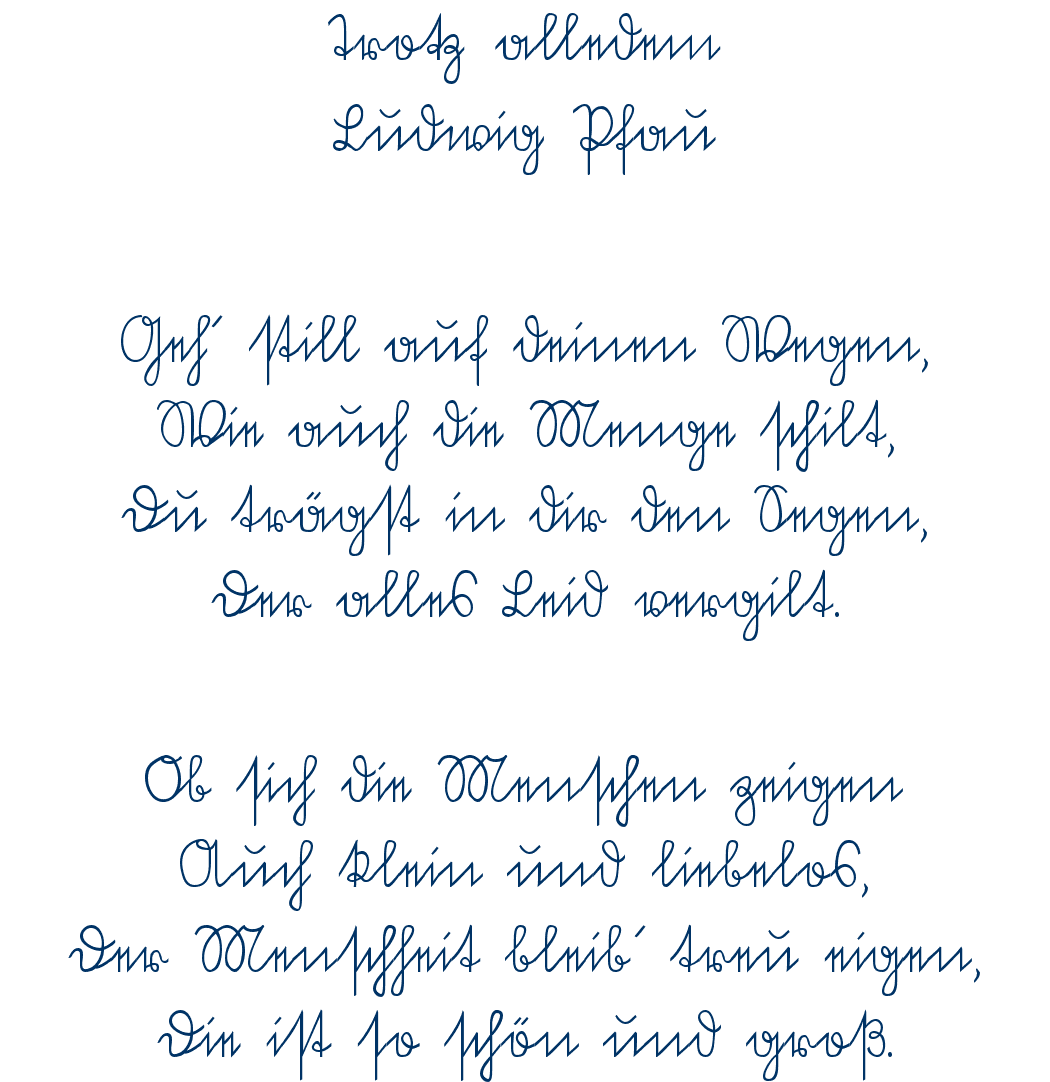 Trotz alledem
Ludwig Pfau
Geh´ still auf deinen Wegen,
Wie auch die Menge schilt,
Du trägst in dir den Segen,
Der alles Leid vergilt.
Ob sich die Menschen zeigen
Auch klein und liebelos,
Der Menschheit bleib´ treu eigen,
Die ist so schön und groß.